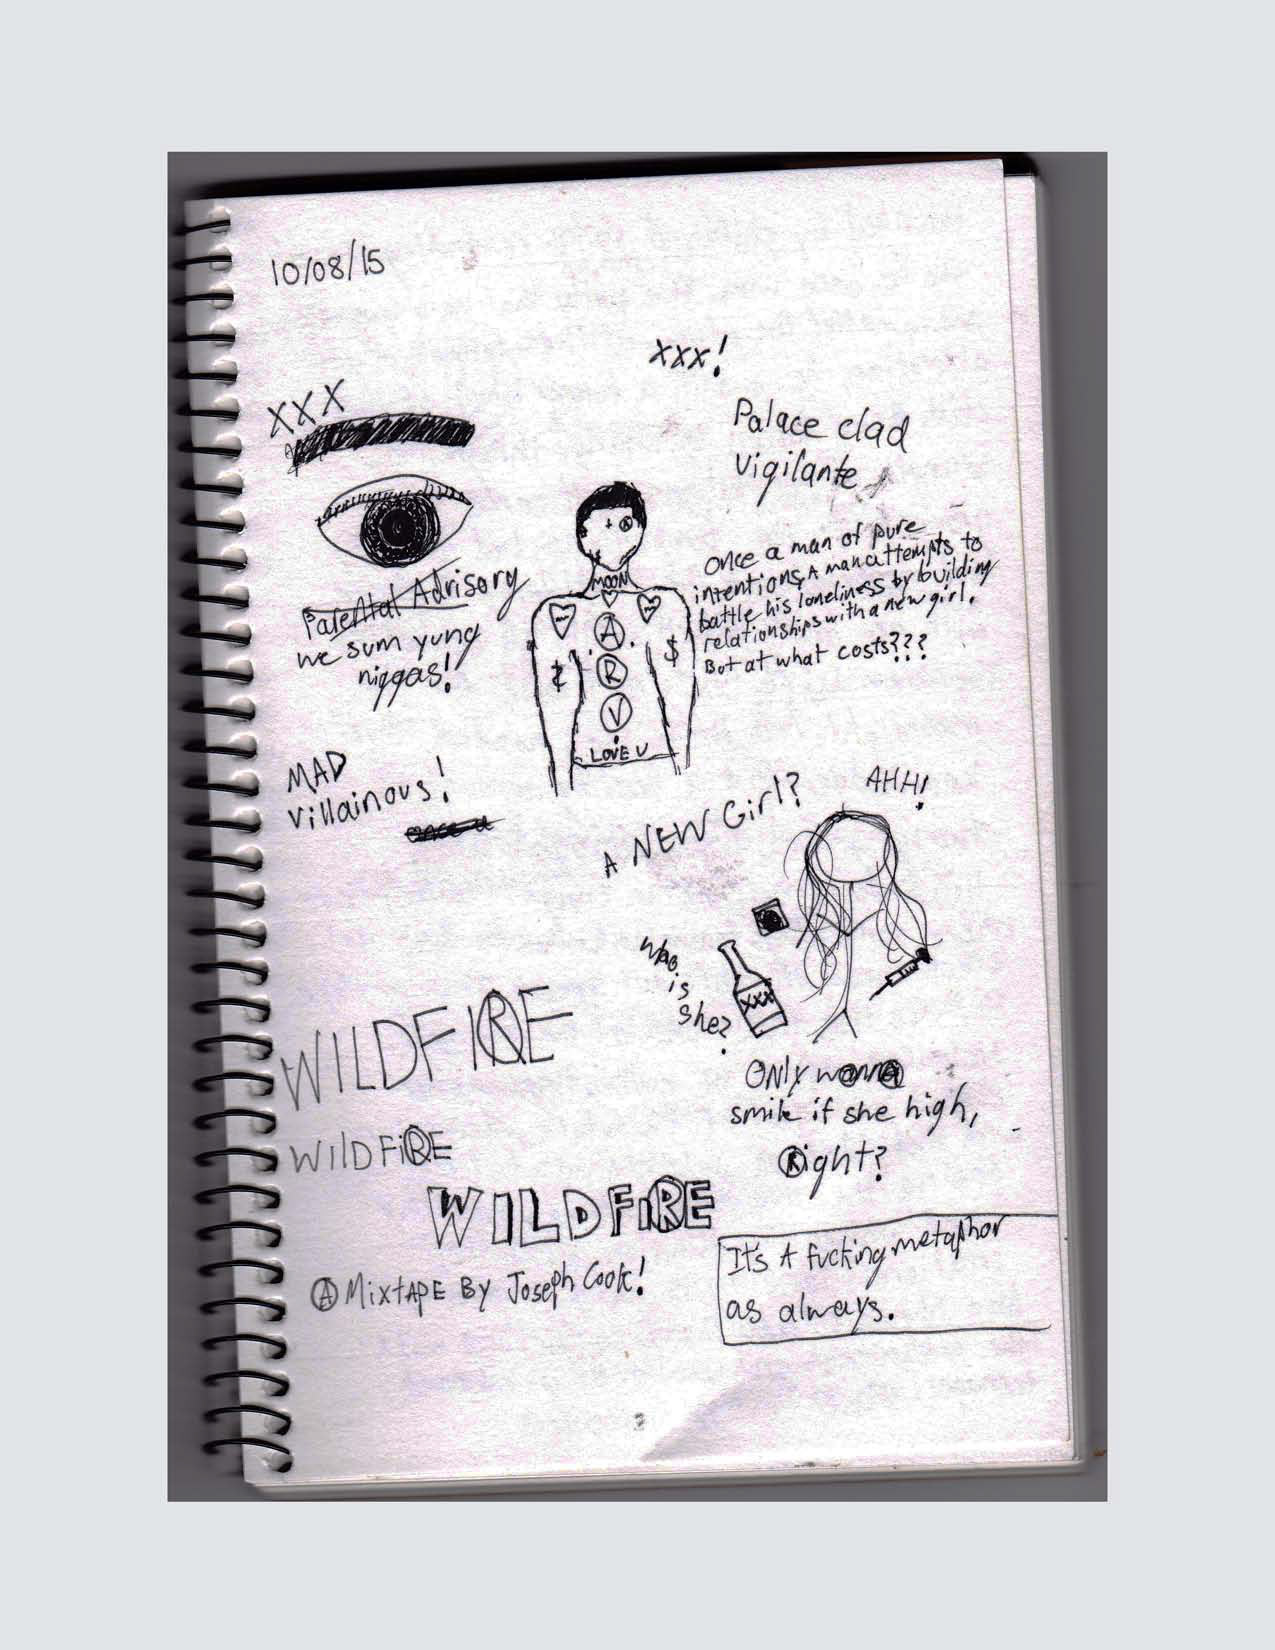 10/08/15
XXX!
XXX
Palace clad
Vigilante
Once a man of pure
intentions, A man attempts to
battle his loneliness by building
relationships with a new girl.
But at what costs???
Parental Advisory
we sum yung
niggas!
MOON
A
R
V
$
LOVE U
MAD
Villainous!
once a
A NEW Girl?
AHH!
Who
is
she?
XXX
WILDFIRE
WILDFiRE
WILDFiRE
A MixtAPE By Joseph Cook!
ONLY wanna
smile if she high,
Right?
It's A fucking metaphor
as always.